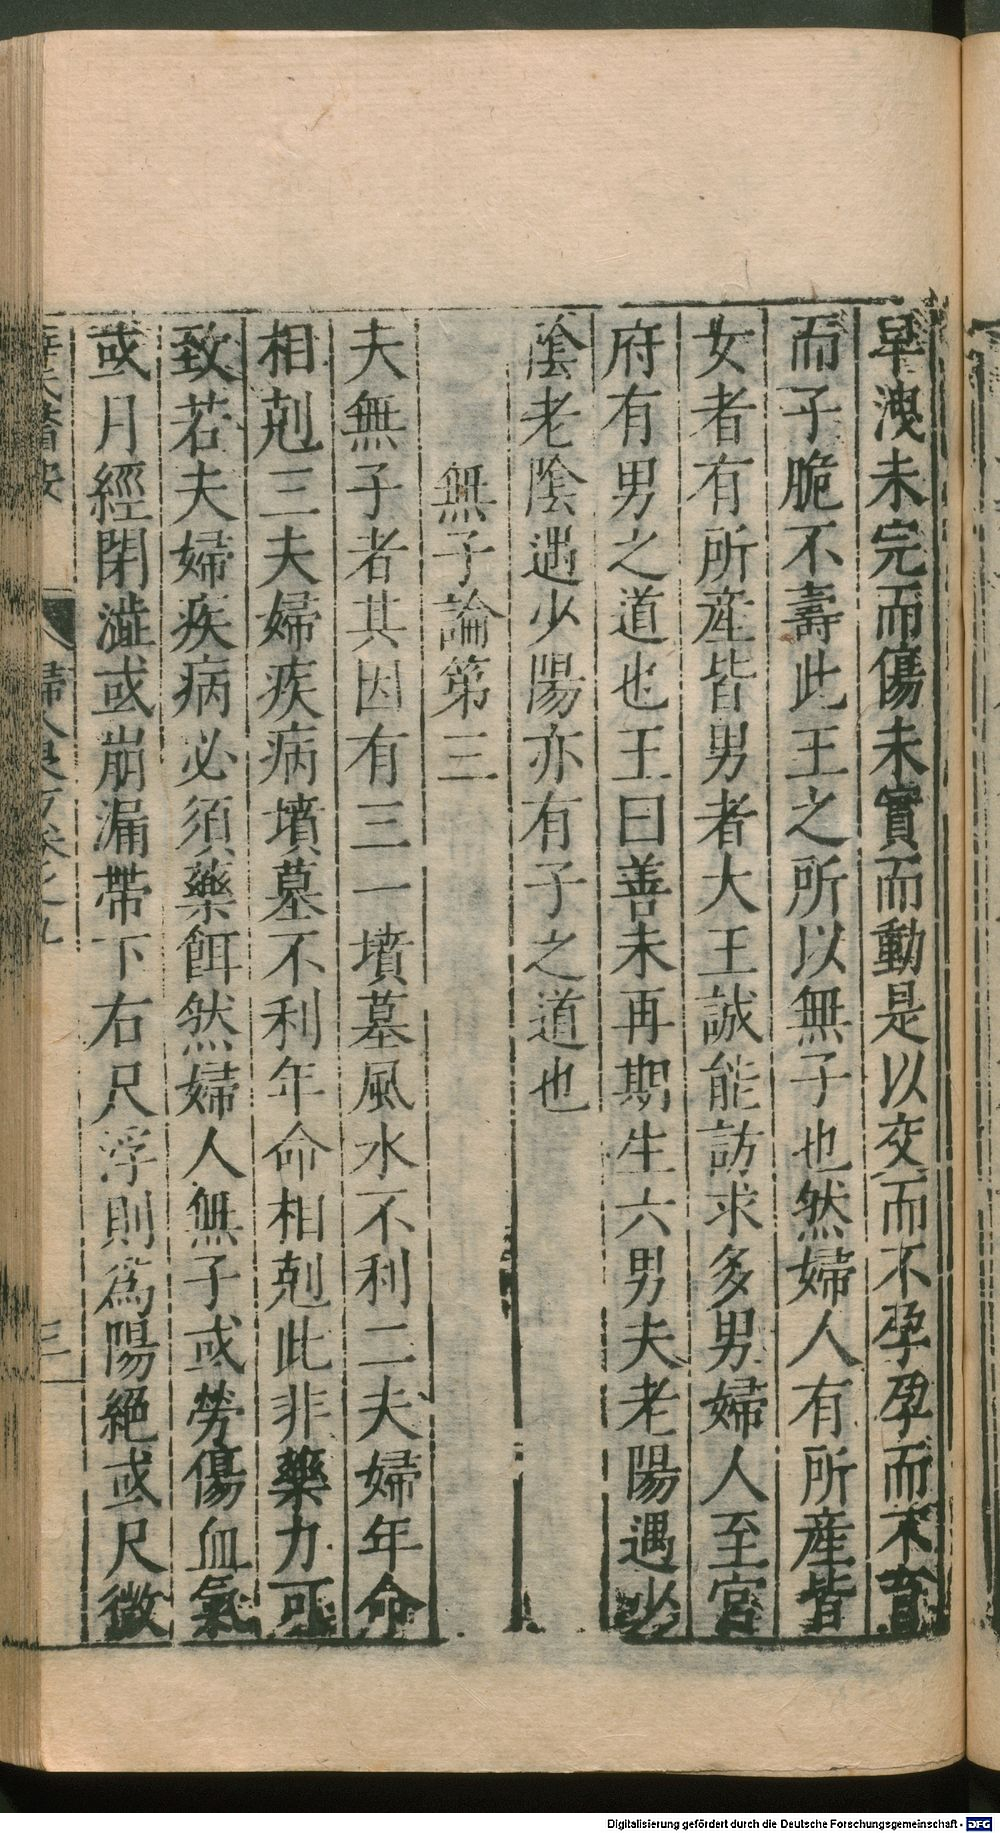 早洩未完而傷未實而動是以交而不孕孕而不育
而子脆不壽此王之所以無子也然婦人有所産皆
女者有所産皆男者大王誠能訪求多男婦人至宮
府有男之道也王曰善未再期生六男夫老陽遇少
陰老陰遇少陽亦有子之道也
無子論第三
夫無子者其因有三一墳墓風水不利二夫婦年命
相剋三夫婦疾病墳墓不利年命相剋此非藥力可
致若夫婦疾病必須藥餌然婦人無子或勞傷血氣
或月經閉澁或崩漏帶下右尺浮則爲陽絕或尺微
婦人良方卷之九
三
Digitalisierung gefördert durch die Deutsche Forschungsgemeinschaft - DFG